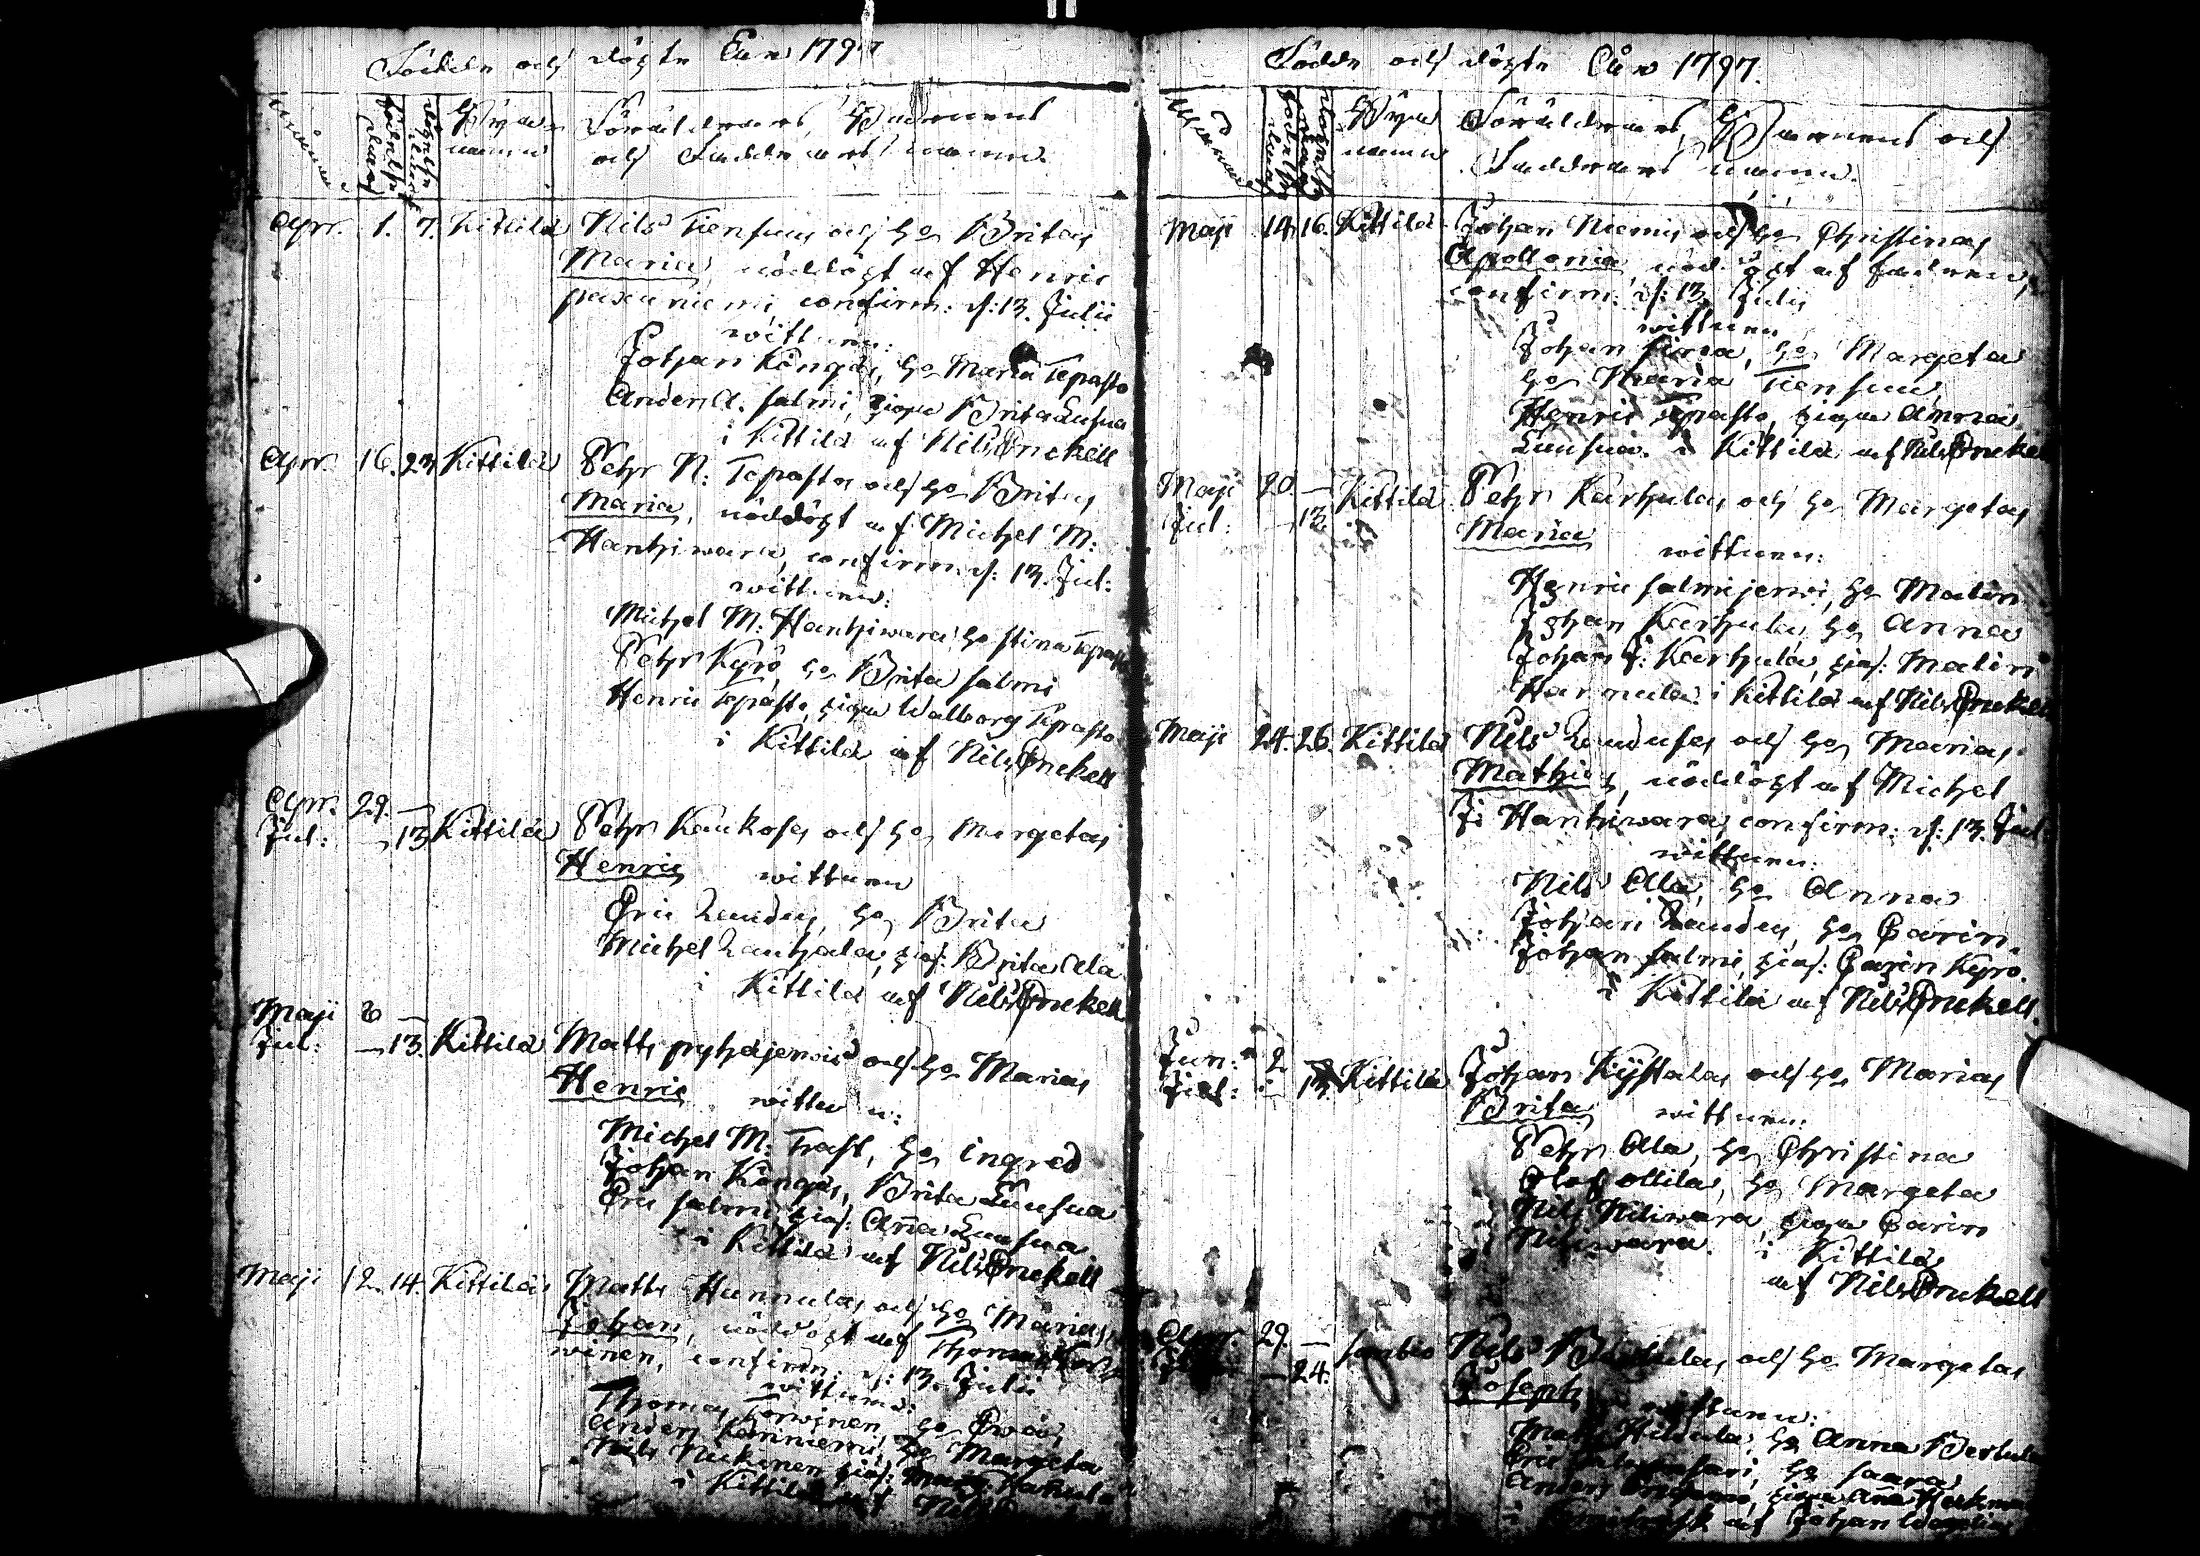 Födde och döpte Åhr 1797
Månad
födelse
döpelse
Byns
namn
Föräldrarnes, Barnens
och Faddrarnes namn.
Apr. 1. 7. Kittilä Nils Tiensuus och h:o Britas
Maria, nöddöpt af Henric
paxuniemi, confirm: d: 13. Julii
wittnen:
Johan Kångäs, h:o Maria Tepasto
Anders A. Salmi, pigan Brita Luusua
i Kittilä af Nils Enckell
Apr. 16. 23. Kittilä Pehr N: Tepastos och h:o Britas
Maria, nöddöpt af Michel M:
Hanhiwara, confirm. d: 13. Jul:
wittnen:
Michel M. Hanhiwara, h:o Stina Tepasto
Pehr Kyrö, h:o Brita Salmi
Henric Tepasto, pigan Walborg Tepasto
i Kittilä af Nils Enckell
Apr. 29. —
Jul: — 13 Kittilä Pehr Kaukoses och h:o Margetas
Henric wittnen
Eric Laudus, h:o Brita
Michel Lauhala, pig: Brita Ala
i Kittilä af Nils Enckell
Maji 8 —
Jul: — 13. Kittilä Matts pyhäjerwis och h:o Marias
Henric wittnen:
Michel M. Trast, h:o ingred
Johan Kångäs, Brita Luusua
Eric Salmi, pig: Anna Luusua
i Kittilä af Nils Enckell
Maji 12. 14. Kittilä Matts Hannulas och h:o Marias
Johan, nöddöpt af Thomas
winen, confirm: d: 13. Julii
wittnen:
Thomas Torwinen, h:o Ewa
Anders h:o Margeta
Nils Nickinen, pig:
i Kittilä af Nils
Födde och döpte Åhr 1797.
Månad
födelse
Byns
namn
Föräldrarnes, Barnens och
Faddrarnes namn.
Maji 14. 16. Kittilä Johan Niemis och h:o Christinas
Apollonia, nöd. döpt af fadren,
confirm: d: 13. Julii
wittnen
Johan Sirca, h:o Margeta
h:o Maria Tiensuu,
Henric Tepasto, pigan Anna
Luusua. i Kittilä af Nils Enckell
Maji 20. — Kittilä Pehr Karhulas och h:o Margetas
Jul: — 13. Maria wittnen:
Henric Salmijerwi, h:o Malin
Johan Karhula, h:o Anna
Johan J: Karhula, pig: Malin
Hannula. i Kittilä af Nils Enckell
Maji 24. 26. Kittilä Nils Lauduses och h:o Marias
Mathis, nöddöpt af Michel
J: Hanhiwara, confirm: d: 13. Jul:
wittnen:
Nils Alla, h:o Anna
Johan Laudus, h:o Carin
Johan Salmi, pig: Carin Kyrö.
i Kittilä af Nils Enckell.
Jun: 2
Jul: 13. Kittilä Johan Kystalas och h:o Marias
Brita wittnen:
Pehr Alla, h:o Christina
Olof Ollila, h:o Margeta
Nils Niliwara, pigan Carin
Niliwara. i Kittilä
af Nils Enckell
Apr. 29. — Sombio Nils och h:o Margetas
— 24. Joseph
wittnen:
Matts h:o Anna
Eric h:o Saara
Anders pigan Anna
i af Johan